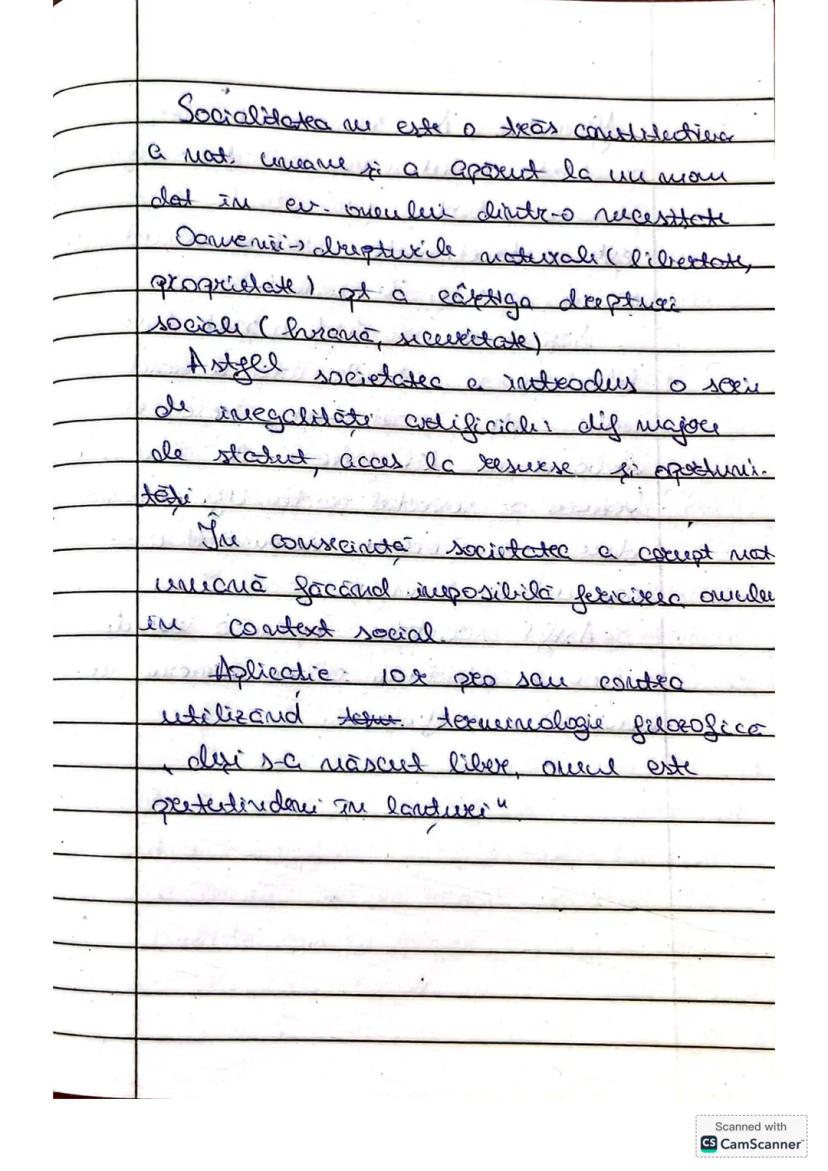 Socialitatea nu este o trăs constitutivă
a nat. umane și a apărut la un mom
dat în ev. omului dintr-o necesitate
Oamenii → drepturile naturale (libertate,
proprietate) pt a câștiga drepturi
sociale (hrană, securitate)
Astfel societatea a introdus o serie
de inegalități artificiale: dif majore
de statut, acces la resurse și oportuni-
tăți.
În consecință societatea a corupt nat
umană făcând imposibilă fericirea omului
în context social.
Aplicație: 10 r pro sau contra
utilizând terminologie filozofică
„deși s-a născut liber, omul este
pretutindeni în lanțuri"
Scanned with
CS CamScanner